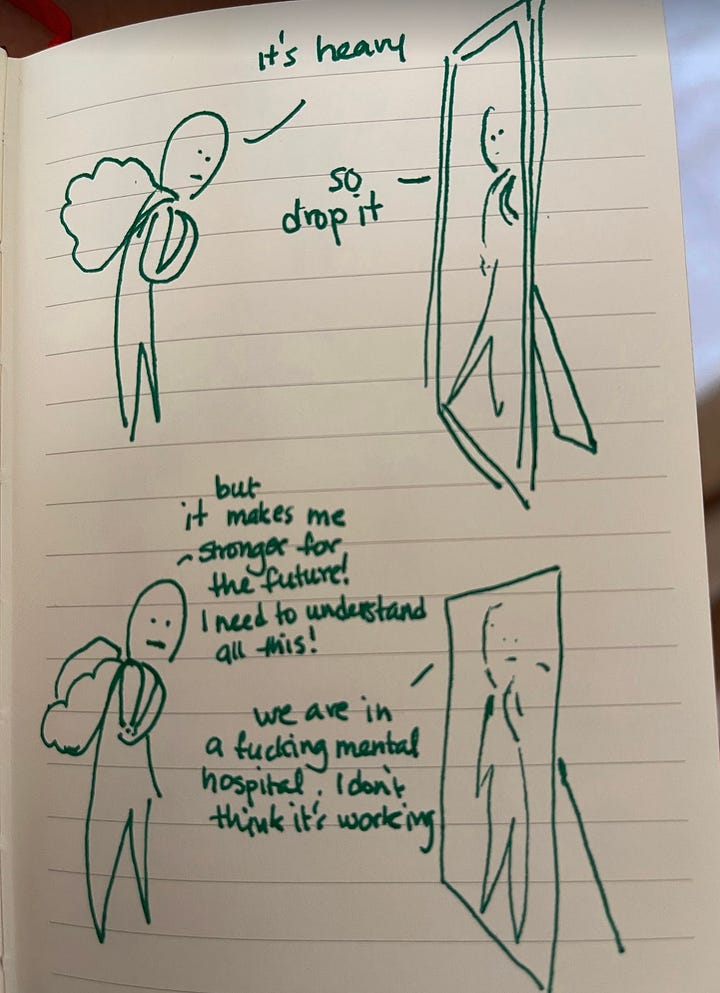 it's heavy
so
drop it
but
it makes me
stronger for
the future!
I need to understand
all this!
we are in
a fucking mental
hospital. I don't
think it's working